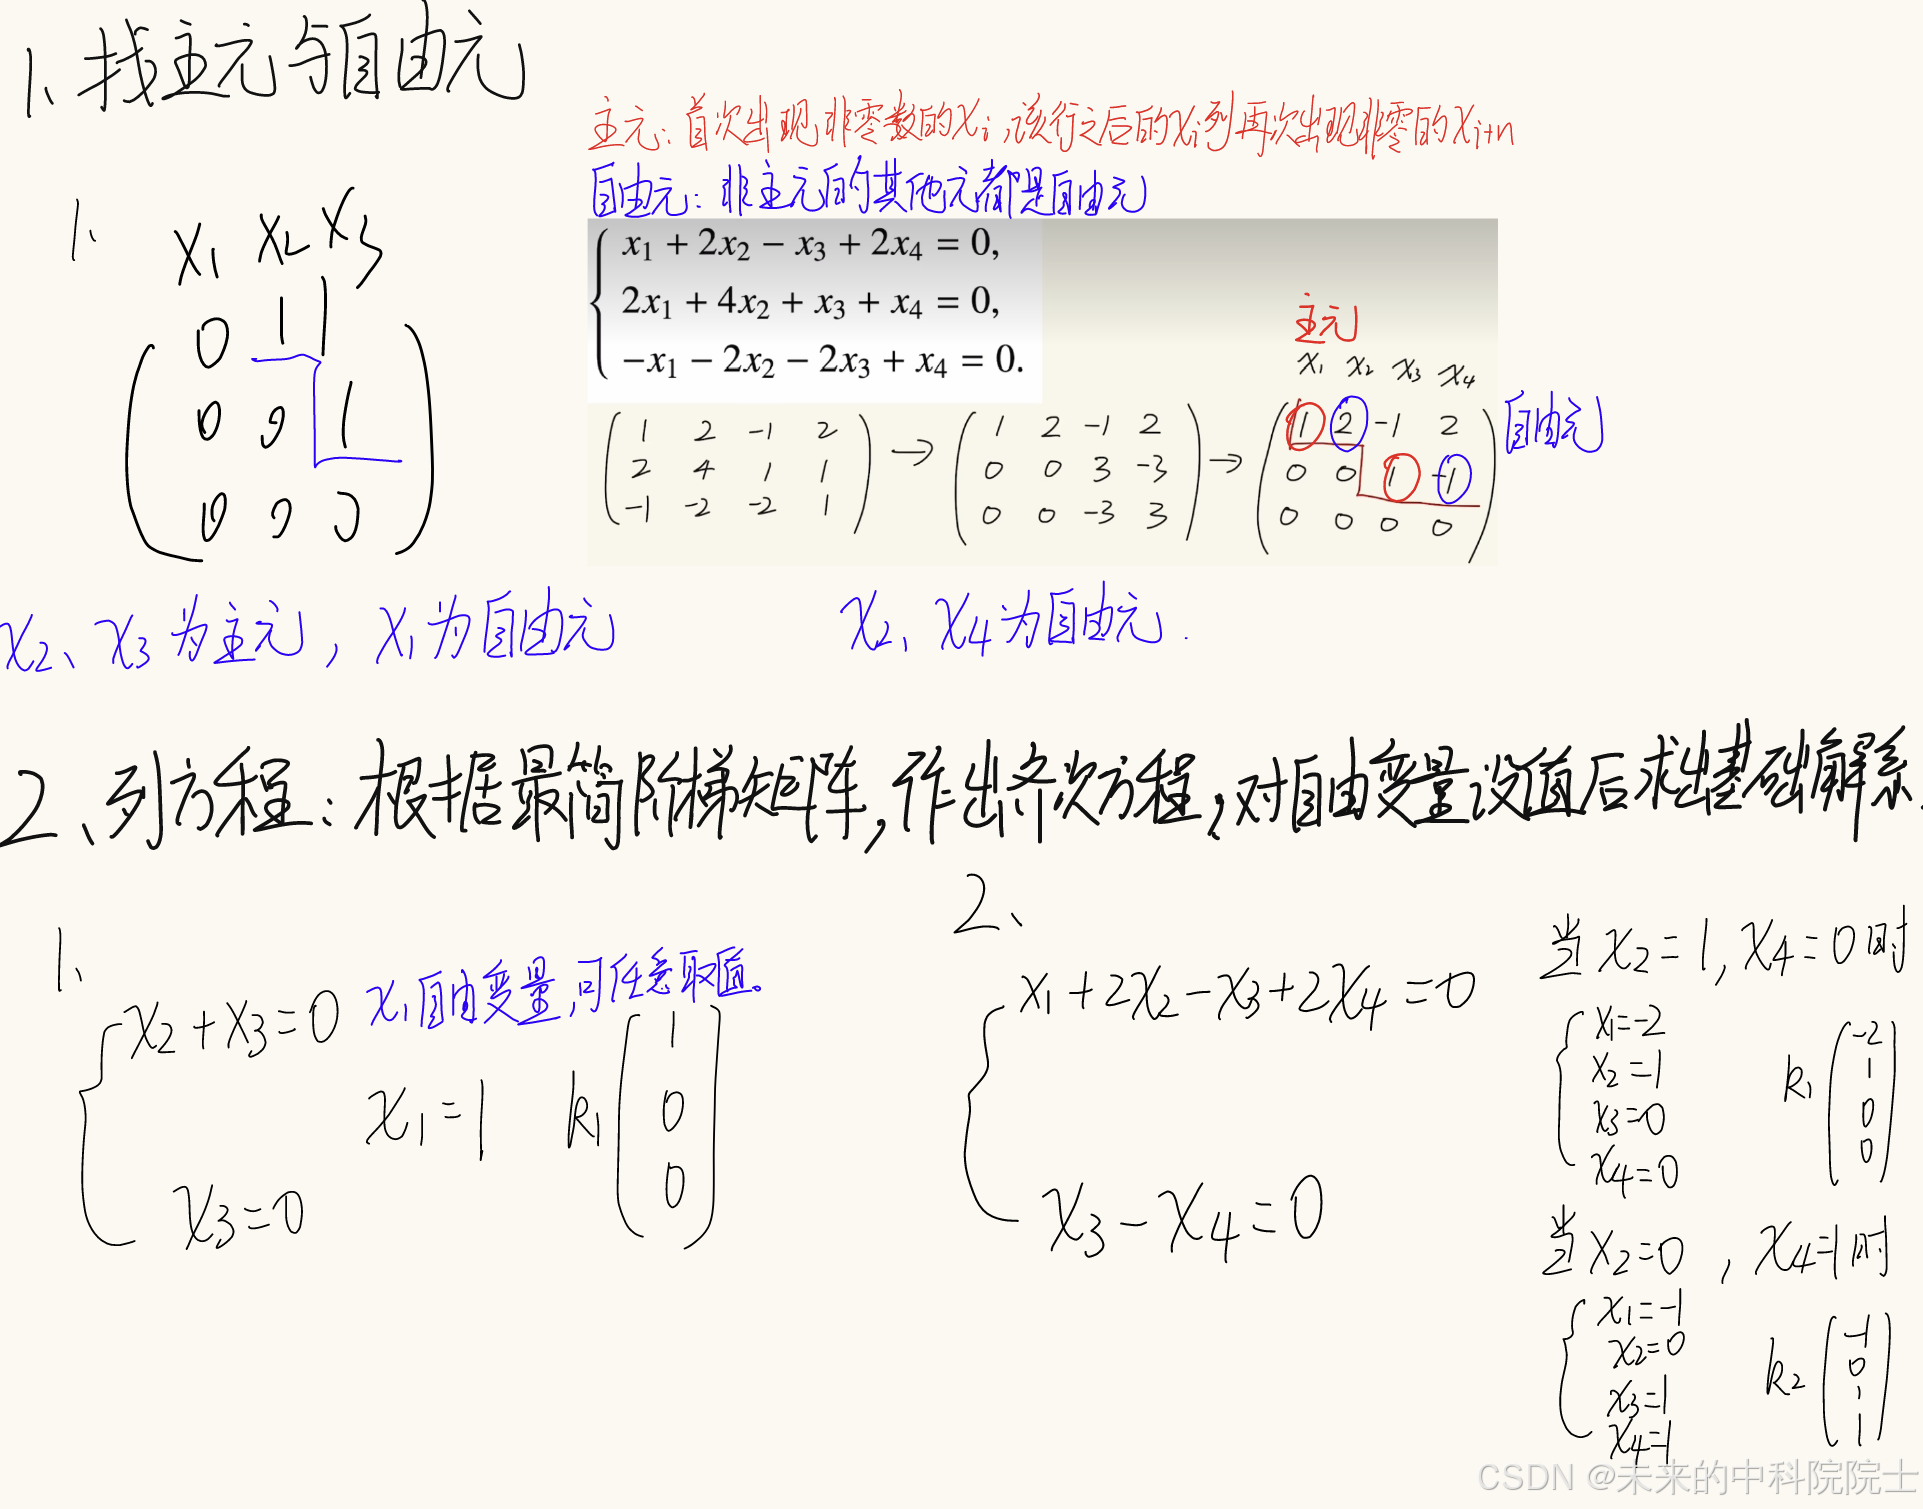 1、找主元与自由元
主元：首次出现非零数的xᵢ，该行之后的xᵢ列再次出现非零的xᵢ₊ₙ
自由元：非主元的其他元都是自由元
1、
x₁ x₂ x₃
0 1 1
0 0 1
0 0 0
x₁ + 2x₂ − x₃ + 2x₄ = 0,
2x₁ + 4x₂ + x₃ + x₄ = 0,
−x₁ − 2x₂ − 2x₃ + x₄ = 0.
1 2 -1 2
2 4 1 1
-1 -2 -2 1
→
1 2 -1 2
0 0 3 -3
0 0 -3 3
→
主元
x₁ x₂ x₃ x₄
1 2 -1 2
0 0 1 -1
0 0 0 0
自由元
x₂、x₃为主元，x₁为自由元
x₂、x₄为自由元.
2、列方程：根据最简阶梯矩阵，作出齐次方程，对自由变量设值后求出基础解系.
1、
x₂+x₃=0
x₃=0
x₁自由变量，可任意取值。
x₁=1
k₁
1
0
0
2、
x₁+2x₂-x₃+2x₄=0
x₃-x₄=0
当x₂=1,x₄=0时
x₁=-2
x₂=1
x₃=0
x₄=0
k₁
-2
1
0
0
当x₂=0，x₄=1时
x₁=-1
x₂=0
x₃=1
x₄=1
k₂
-1
0
1
1
CSDN @未来的中科院院士